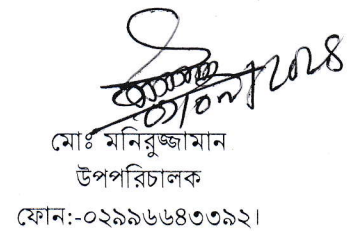 মোঃ মনিরুজ্জামান
উপপরিচালক
ফোন:-০২৯৯৬৬৪৩৩৯২।